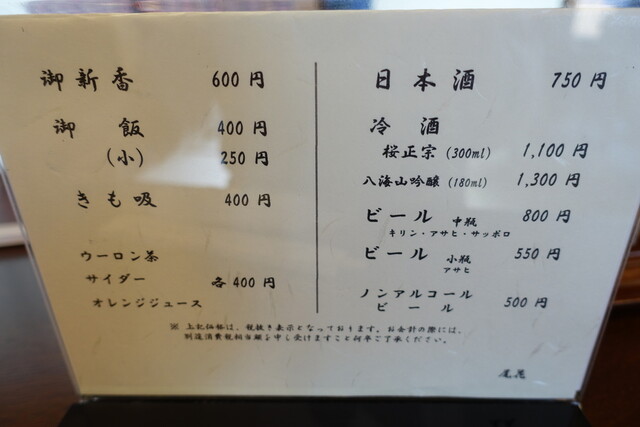 御新香 600 円
御 飯 400 円
(小) 250 円
きも吸 400 円
ウーロン茶
サイダー 各 400 円
オレンジジュース
日本酒 750 円
冷 酒
桜正宗 (300ml) 1,100 円
八海山吟醸 (180ml) 1,300 円
ビール 中瓶 800 円
キリン・アサヒ・サッポロ
ビール 小瓶 550 円
アサヒ
ノンアルコール
ビール 500 円
※ 上記価格は、税抜き表示となっております。お会計の際には、
別途消費税相当額を申し受けますこと何卒ご了承ください。
尾花